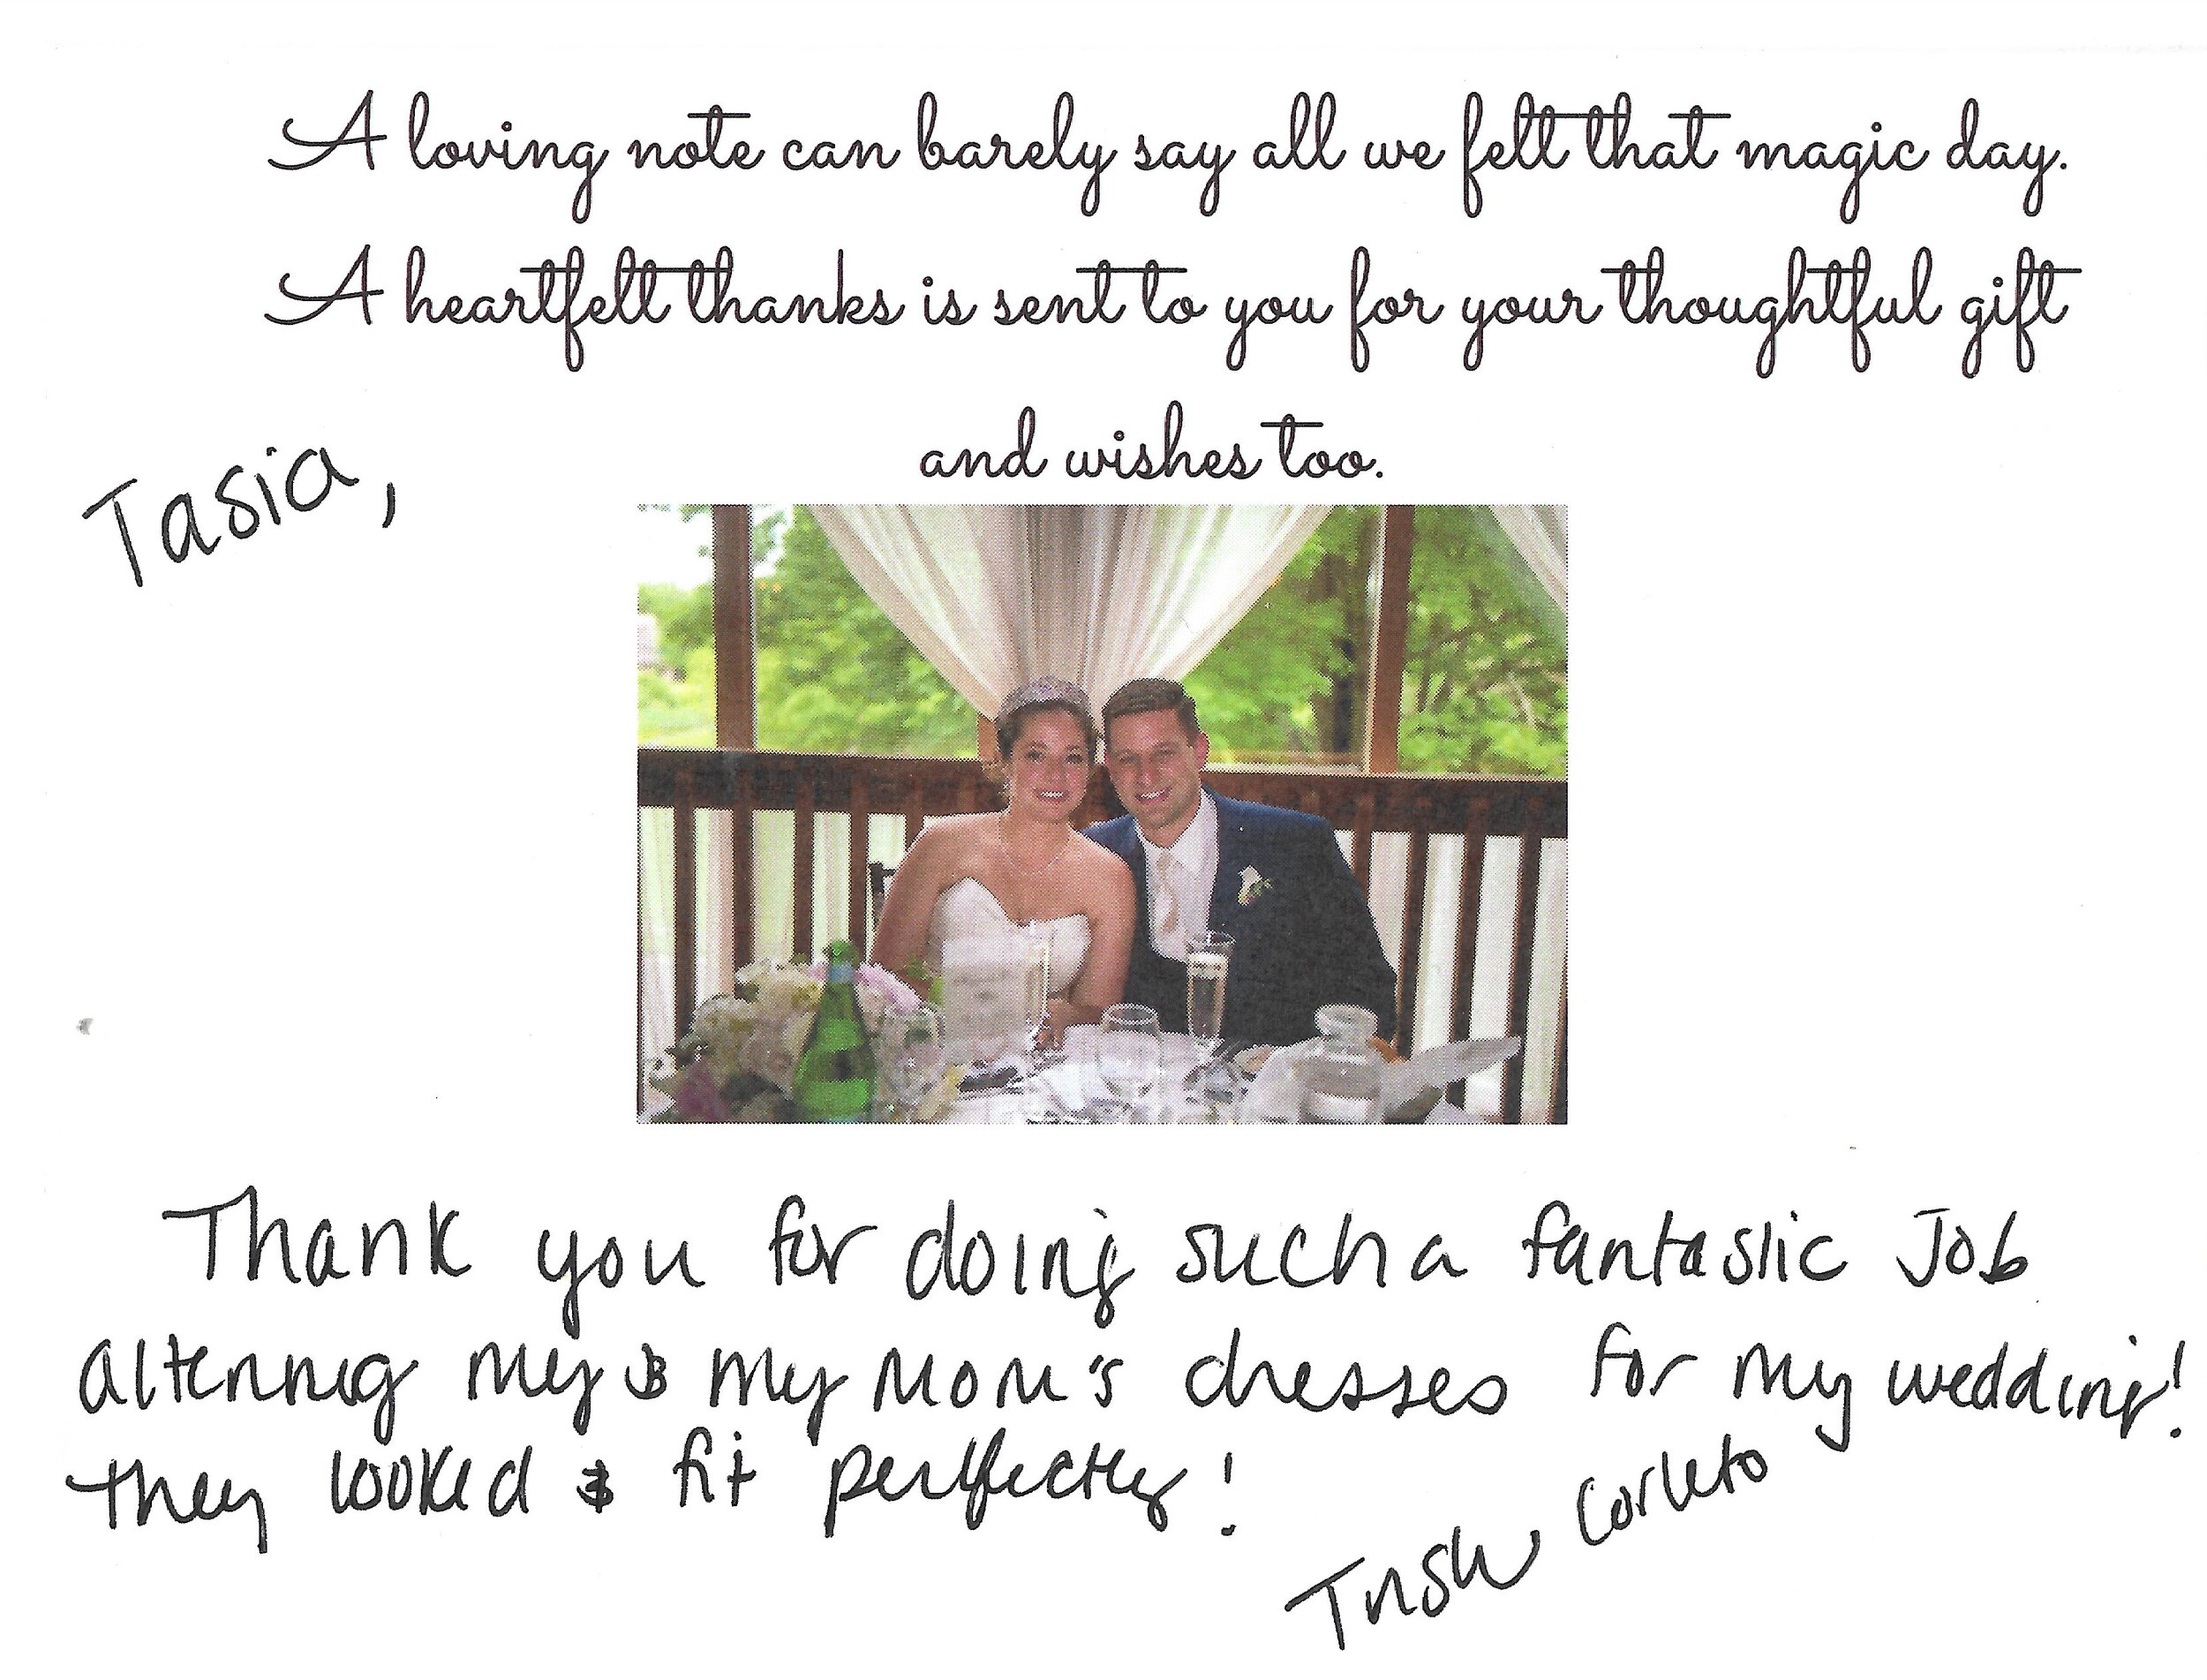 A loving note can barely say all we felt that magic day.
A heartfelt thanks is sent to you for your thoughtful gift
and wishes too.
Tasia,
Thank you for doing such a fantastic Job
altering my & my Mom's dresses for my wedding!
they looked & fit perfectly!
Trish Corleto